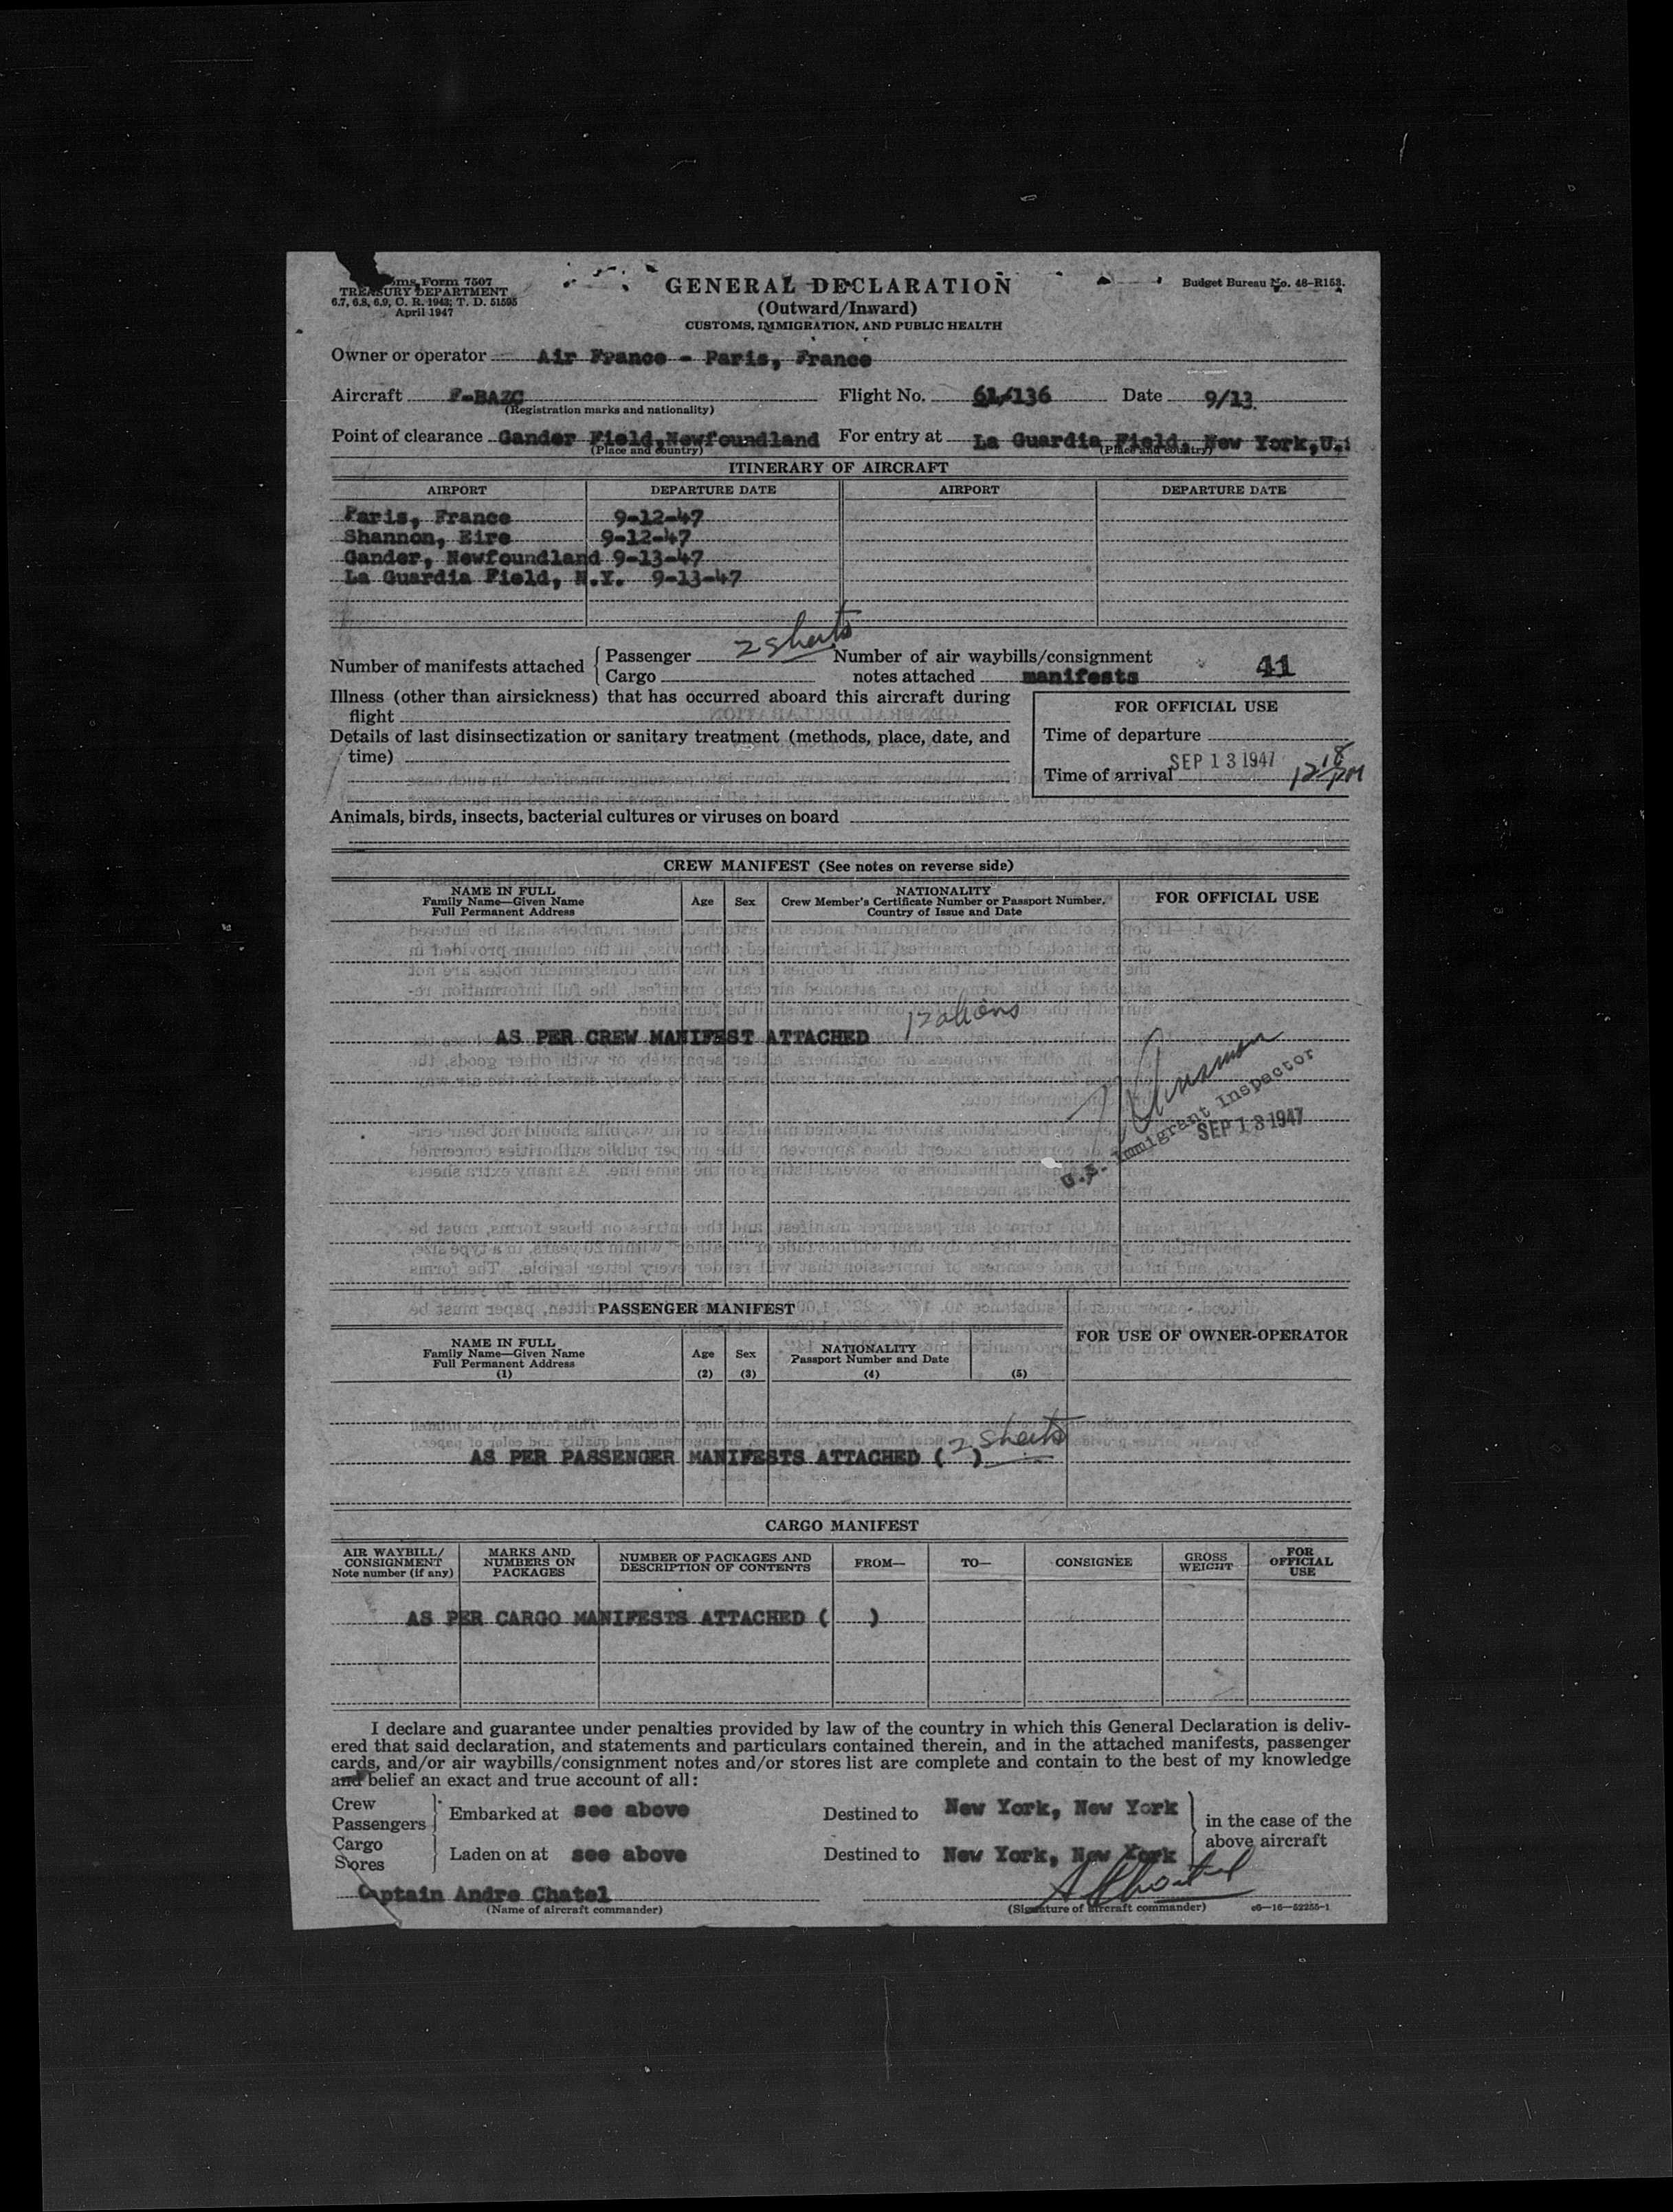 ms Form 7507
TREASURY DEPARTMENT
6.7, 6.8, 6.9, C. R. 1943; T. D. 51595
April 1947
GENERAL DECLARATION
(Outward/Inward)
CUSTOMS, IMMIGRATION, AND PUBLIC HEALTH
Budget Bureau No. 48-R153.
Owner or operator Air France - Paris, France
Aircraft F-BAZC Flight No. 61/136 Date 9/13
(Registration marks and nationality)
Point of clearance Gander Field, Newfoundland For entry at La Guardia Field, New York, U.
(Place and country) (Place and country)
ITINERARY OF AIRCRAFT
AIRPORT DEPARTURE DATE AIRPORT DEPARTURE DATE
Paris, France 9-12-47
Shannon, Eire 9-12-47
Gander, Newfoundland 9-13-47
La Guardia Field, N.Y. 9-13-47
Number of manifests attached { Passenger 2 sheets Number of air waybills/consignment
Cargo notes attached manifests 41
Illness (other than airsickness) that has occurred aboard this aircraft during
flight
Details of last disinsectization or sanitary treatment (methods, place, date, and
time)
FOR OFFICIAL USE
Time of departure
Time of arrival SEP 13 1947 12 18 PM
Animals, birds, insects, bacterial cultures or viruses on board
CREW MANIFEST (See notes on reverse side)
NAME IN FULL
Family Name—Given Name
Full Permanent Address
Age Sex
NATIONALITY
Crew Member's Certificate Number or Passport Number,
Country of Issue and Date
FOR OFFICIAL USE
AS PER CREW MANIFEST ATTACHED 12 aliens
U.S. Immigrant Inspector
SEP 13 1947
PASSENGER MANIFEST
NAME IN FULL
Family Name—Given Name
Full Permanent Address
(1)
Age
(2)
Sex
(3)
NATIONALITY
Passport Number and Date
(4)
(5)
FOR USE OF OWNER-OPERATOR
AS PER PASSENGER MANIFESTS ATTACHED ( 2 sheets )
CARGO MANIFEST
AIR WAYBILL/
CONSIGNMENT
Note number (if any)
MARKS AND
NUMBERS ON
PACKAGES
NUMBER OF PACKAGES AND
DESCRIPTION OF CONTENTS
FROM—
TO—
CONSIGNEE
GROSS
WEIGHT
FOR
OFFICIAL
USE
AS PER CARGO MANIFESTS ATTACHED ( )
I declare and guarantee under penalties provided by law of the country in which this General Declaration is deliv-
ered that said declaration, and statements and particulars contained therein, and in the attached manifests, passenger
cards, and/or air waybills/consignment notes and/or stores list are complete and contain to the best of my knowledge
and belief an exact and true account of all:
Crew
Passengers } Embarked at see above Destined to New York, New York
Cargo
Stores } Laden on at see above Destined to New York, New York
in the case of the
above aircraft
Captain Andre Chatel A Chatel
(Name of aircraft commander) (Signature of aircraft commander) c6—16—52255-1